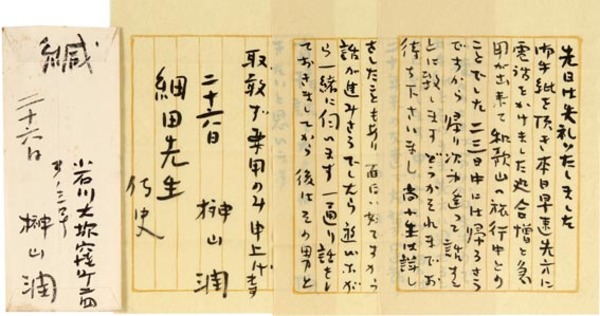 先日は失礼いたしました
御手紙を頂き本日早速先方に
電話をかけました処合憎と急
用が出来て和歌山の旅行中との
ことでした 二三日中には帰るさう
ですから 帰り次第逢って話すこ
とに致します どうかそれまでお
待ち下さいまし 尚小生は詳し
話が進みさうでしたら
ら一緒に伺います 一通り話をし
ておきましてから 後はその男と
取敢ず要用のみ申上げます
二十六日
榊山潤
細田先生
侍史
緘
二十六日
小石川大塚窪町二四
榊山潤